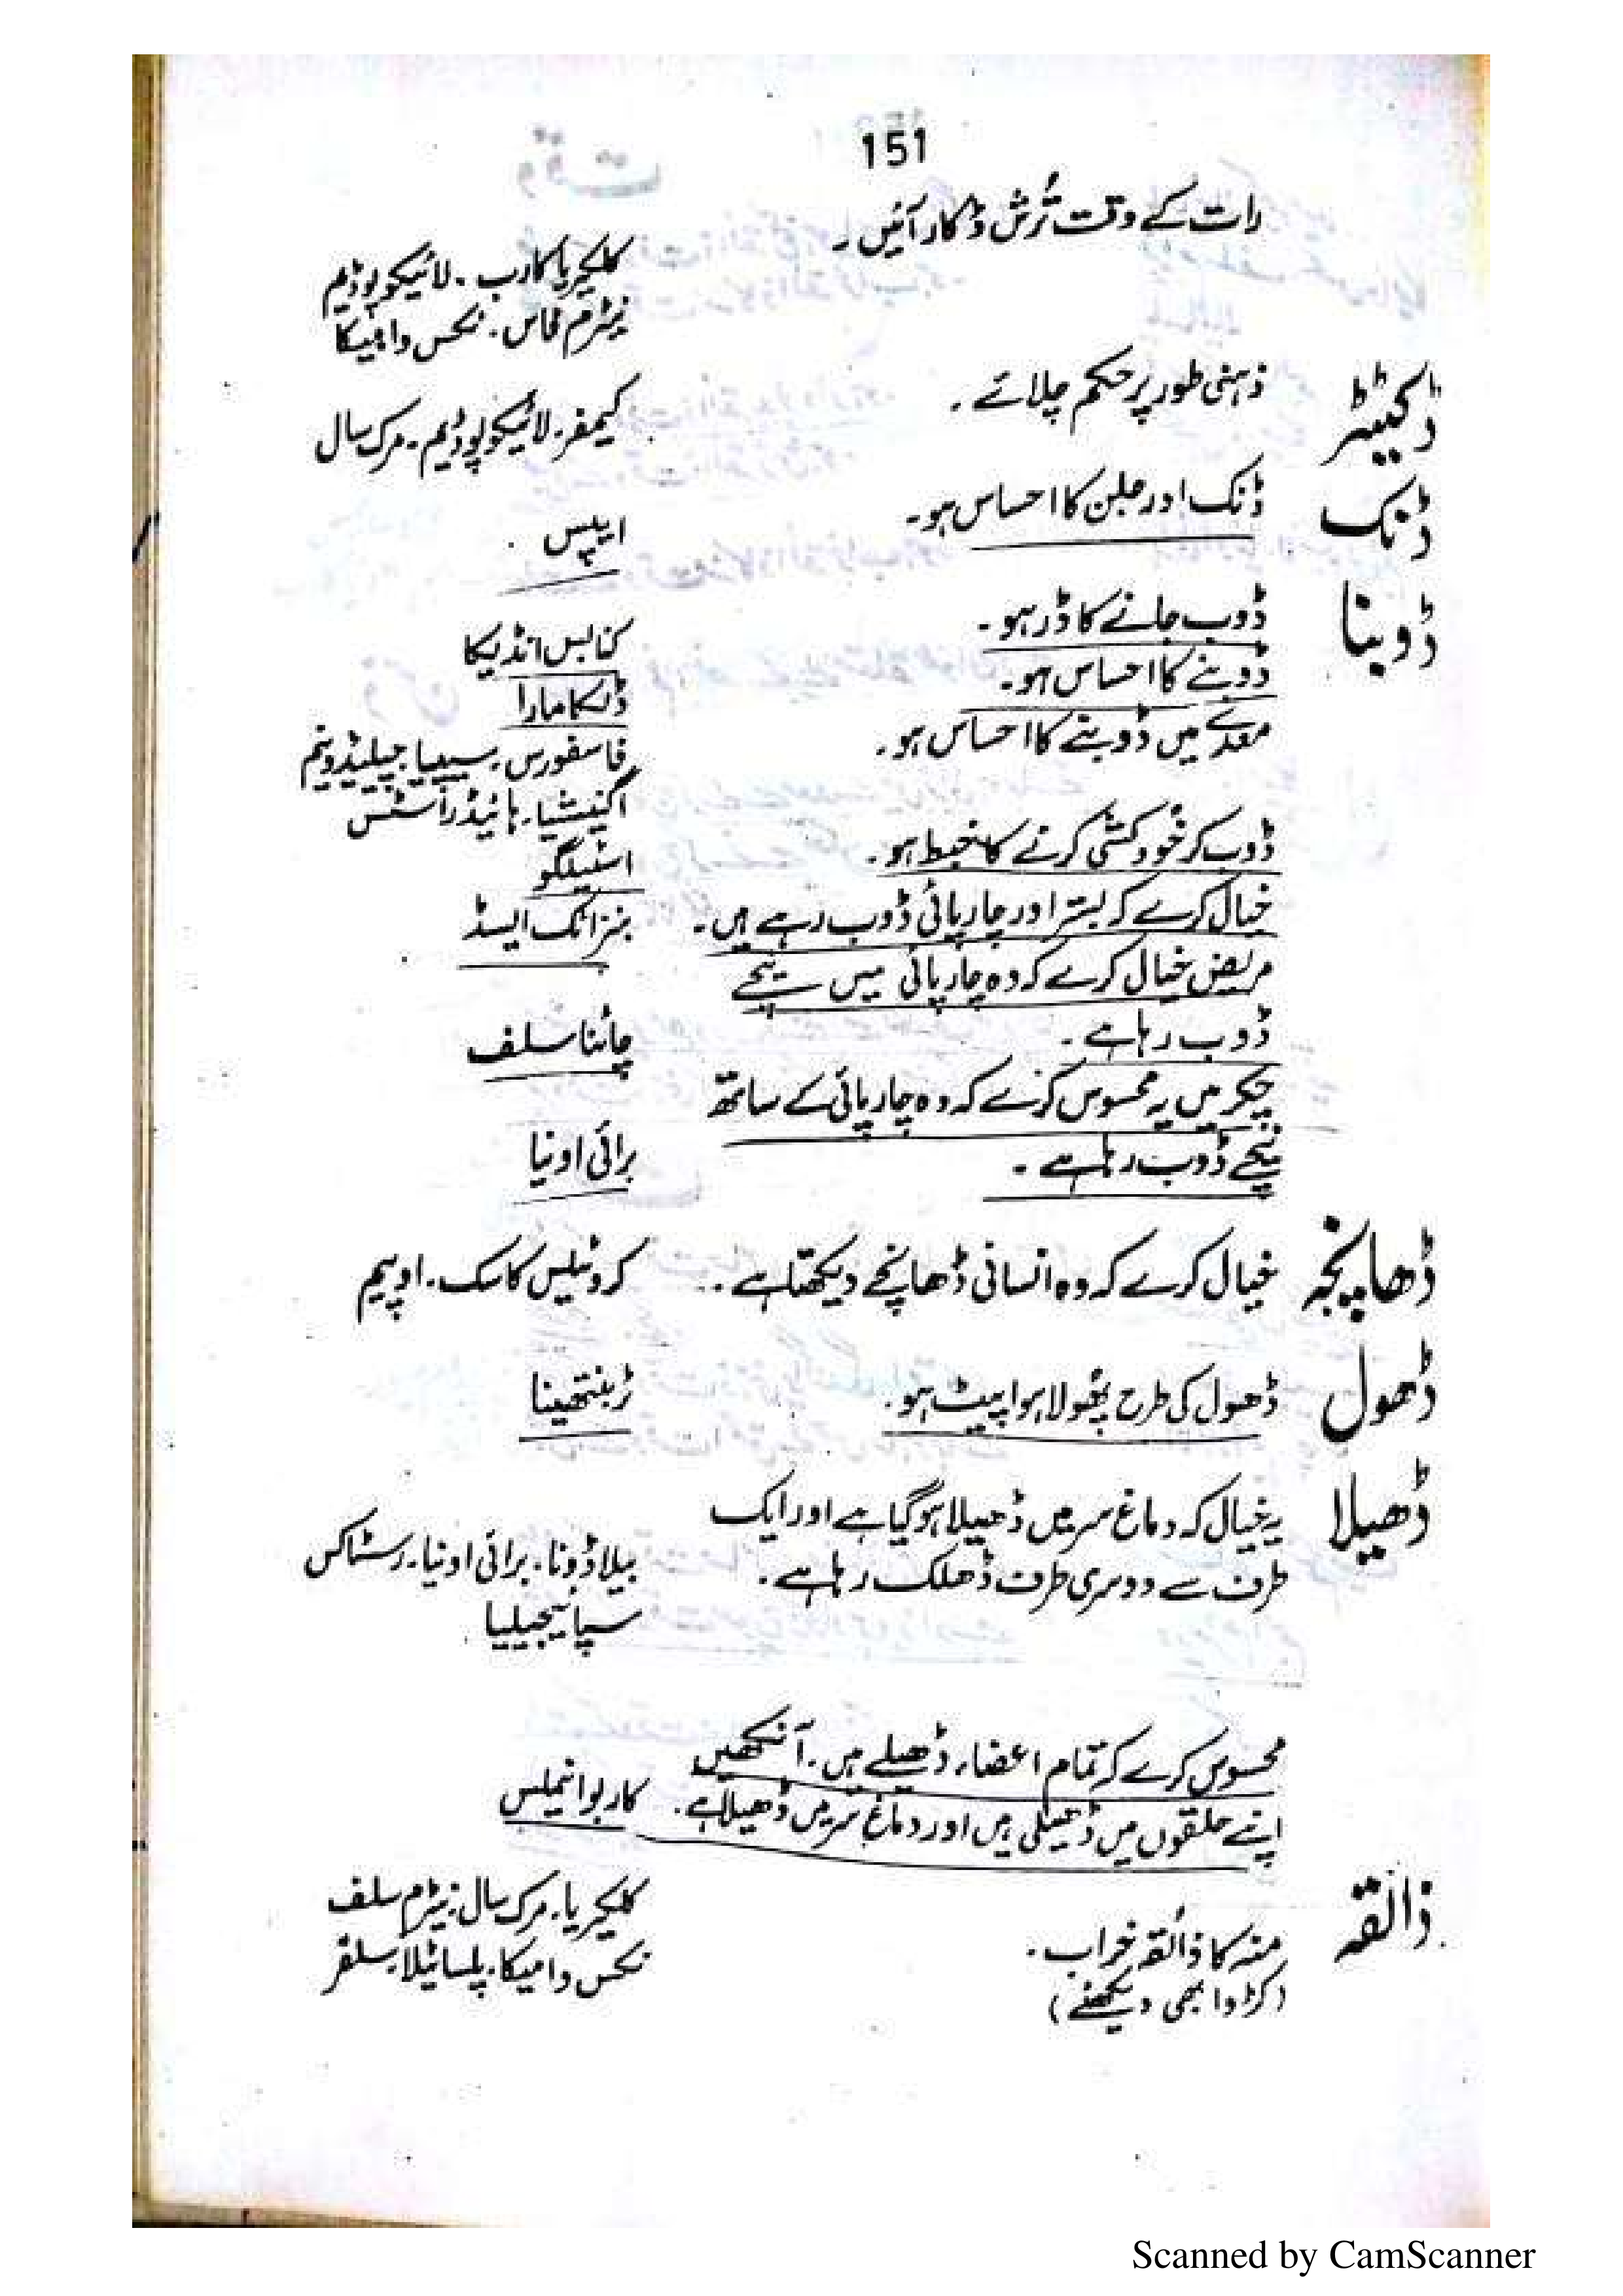 151
رات کے وقت تُرش ڈکار آئیں۔
کلکیریا کارب۔ لائیکوپوڈیم
نیٹرم فاس۔ نکس وامیکا
ڈکٹیٹر
ذہنی طور پر حکم چلائے۔
کیمفر۔ لائیکوپوڈیم۔ مرک سال
ڈنک
ڈنک اور جلن کا احساس ہو۔
ایپس
ڈوبنا
ڈوب جانے کا ڈر ہو۔
کنابس انڈیکا
ڈوبنے کا احساس ہو۔
ڈلکامارا
معدے میں ڈوبنے کا احساس ہو۔
فاسفورس۔ سیپیا۔ چیلیڈونیم
اگنیشیا۔ ہائیڈراسٹس
ڈوب کر خُودکشی کرنے کا خبط ہو۔
اسٹیلگو
خیال کرے کہ بستر اور چارپائی ڈوب رہے ہیں۔
بنزائک ایسڈ
مریض خیال کرے کہ وہ چارپائی میں نیچے
ڈوب رہا ہے۔
چائنا سلف
چکر میں یہ محسوس کرے کہ وہ چارپائی کے ساتھ
نیچے ڈوب رہا ہے۔
برائی اونیا
ڈھانچہ
خیال کرے کہ وہ انسانی ڈھانچے دیکھتا ہے۔
کروٹیلس کاسک۔ اوپیم
ڈھول
ڈھول کی طرح پھُولا ہوا پیٹ ہو۔
ٹربنتھینا
ڈھیلا
یہ خیال کہ دماغ سر میں ڈھیلا ہوگیا ہے اور ایک
طرف سے دوسری طرف ڈھلک رہا ہے۔
بیلاڈونا۔ برائی اونیا۔ رسٹاکس
سپائیجیلیا
محسوس کرے کہ تمام اعضاء ڈھیلے ہیں۔ آنکھیں
اپنے حلقوں میں ڈھیلی ہیں اور دماغ سر میں ڈھیلا ہے۔
کاربوانیملس
ذائقہ
منہ کا ذائقہ خراب۔
(کڑوا بھی دیکھئے)
کلکیریا۔ مرک سال۔ نیٹرم سلف
نکس وامیکا۔ پلساٹیلا۔ سلفر
Scanned by CamScanner